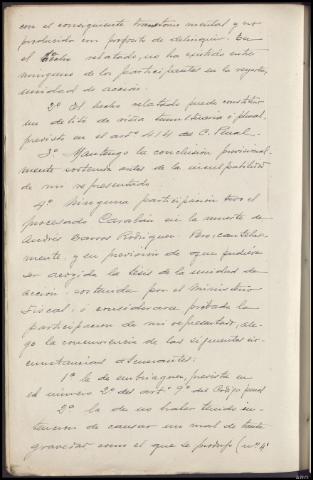 con el consiguiente trastorno mental y no
producido con propósito de delinquir. En
el hecho relatado, no ha existido entre
ninguno de los participantes en la reyerta,
unidad de acción.
2º El hecho relatado puede constituir
un delito de riña tumultuaria o plural,
previsto en el artº 414 del C. Penal.
3º Mantengo la conclusión provisional-
mente sostenida antes de la inculpabilidad
de mi representado.
4º Ninguna participación tuvo el
procesado Carabán en la muerte de
Andrés Barros Rodriguez. Pero, cautelar-
mente, y en previsión de que pudiera
ser acogida la tesis de la unidad de
acción, sostenida por el Ministerio
Fiscal, o considerara probada la
participacion de mi representado, ale-
go la concurrencia de las siguientes cir-
cunstancias atenuantes:
1º la de embriaguez, prevista en
el número 2º del artº 9º del Codigo penal
2º la de no haber tenido in-
tencion de causar un mal de tanta
gravedad como el que se produjo (nº 4º